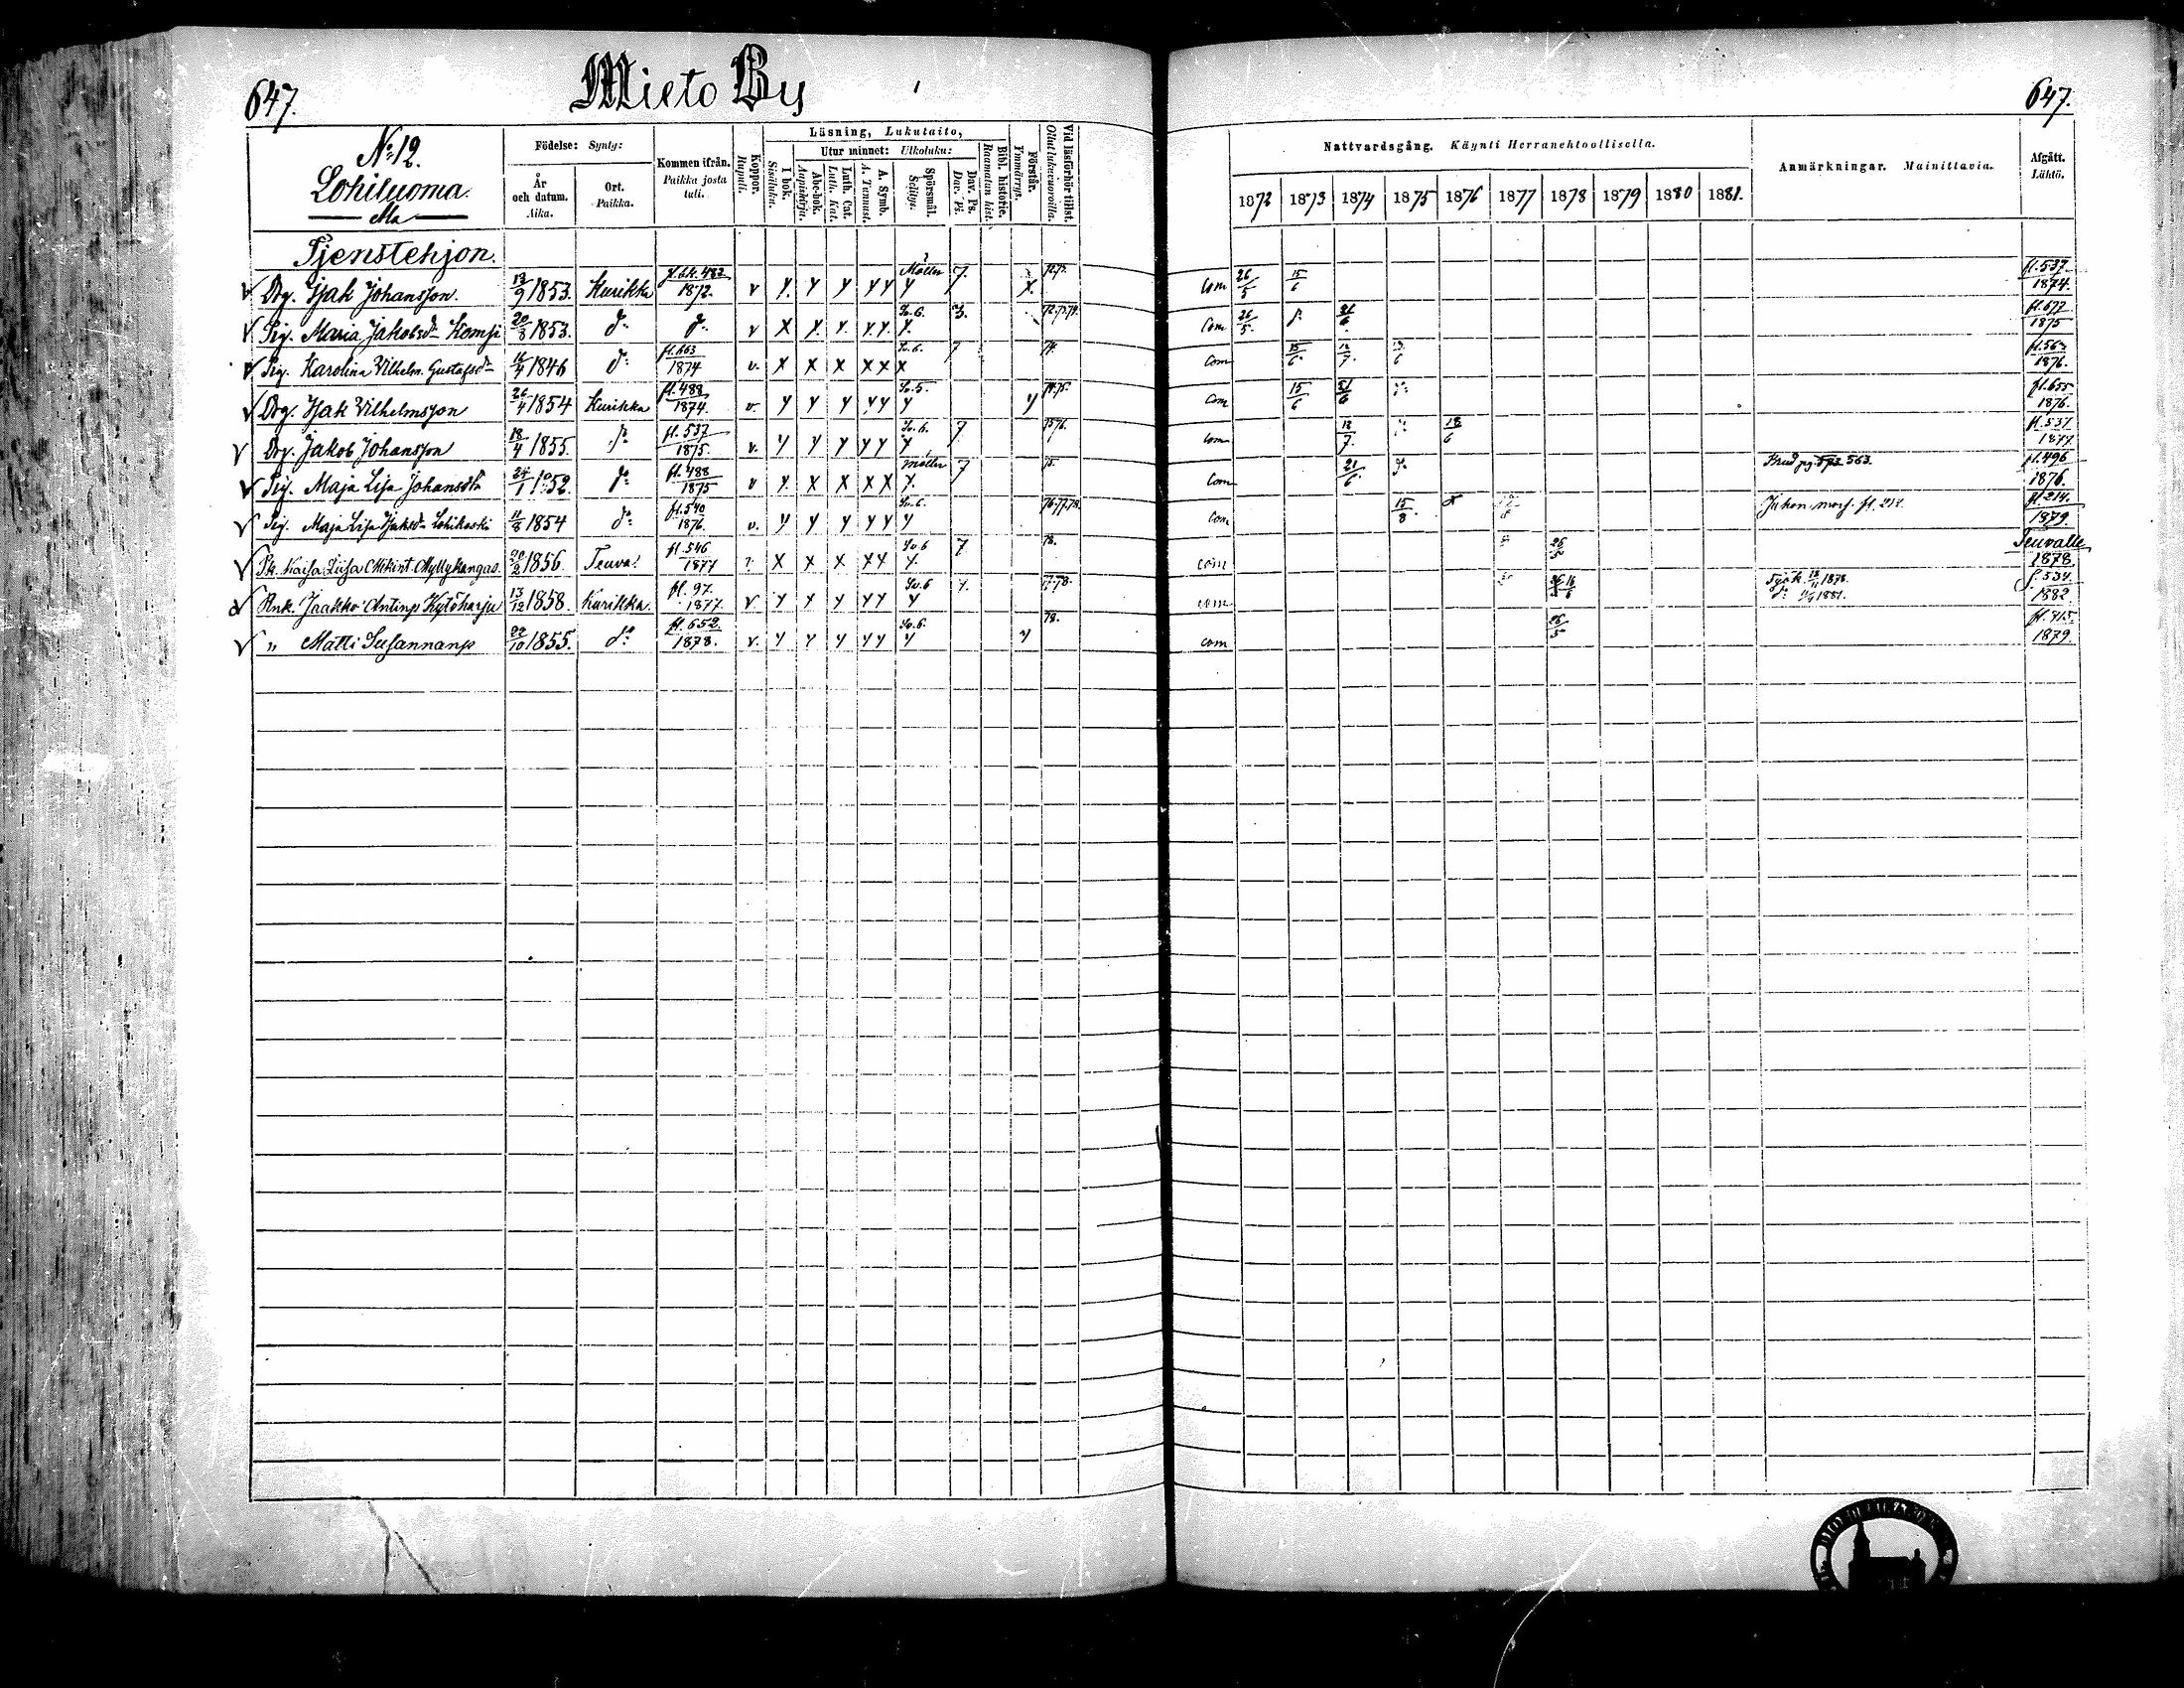 647.
Mieto By
647.
No 12.
Lohiluoma.
Födelse: Synty:
År och datum. Aika.
Ort. Paikka.
Kommen ifrån. Paikka josta tuli.
Koppor. Rupuli.
Läsning, Lukutaito,
I bok. Sisäluku.
Utur minnet: Ulkoluku:
Abc-bok. Aapiskirja.
Luth. Cat. Luth. Kat.
A. Symb. A. Tunnust.
Spörsmål. Selitys.
Dav. Ps. Dav. Ps.
Bibl. historie. Raamatun hist.
Förstår. Ymmärrys.
Vid läsförhör tillst. Ollut lukuvuoroilla.
Nattvardsgång. Käynti Herranehtoollisella.
1872 1873 1874 1875 1876 1877 1878 1879 1880 1881.
Anmärkningar. Mainittavia.
Afgått. Lähtö.
Tjenstehjon.
Drg. Isak Johansson. 13/9 1853. Kurikka 1872. v Möller 7. Com 26/5 15/6 fl. 537. 1874.
Pig. Maria Jakobsdr Komsi 20/8 1853. do do v Sv. 6. 3. Com 26/5. fl. 677 1875
Pig. Karolina Vilhelm. Gustafsdr 1846 do fl. 663 1874 v. Sv. 6. 7 74. Com 15/6 fl. 563 1876.
Drg. Isak Vilhelmsson 26/4 1854 Kurikka fl. 483 1874. v. Sv. 5. 74.75. Com 15/6 21/6 fl. 655 1876.
Drg. Jakob Johansson 18/4 1855. do fl. 537 1875. v. Sv. 6. 7 75 76. Com 18/6 fl. 537 1877
Pig. Maja Lisa Johansdr 24/1 1852. do fl. 488 1875 v Möller 7 75. Com 21/6 do 563. fl. 496 1876.
Pig. Maja Lisa Isaksdr Lohikoski 11/8 1854 do fl. 540 1876. v. Sv. 6. 76.77.78. Com 15/8 fl. 214. fl. 214. 1879.
Pk. Kaisa Liisa Mikint. Myllykangas. 1856. Teuva. fl. 546 1877 ? Sv. 6 7 78. com 26/5 Teuvalle 1878
Rnk. Jaakko Antinp Kytöharju 13/12 1858. Kurikka. fl. 97. 1877. v. Sv. 6 7. 77.78. com 1878. 1881. f. 534. 1882
" Matti Susannanp 22/10 1855. do fl. 652. 1878. v. Sv. 6. 78. com 26/5 fl. 415. 1879.